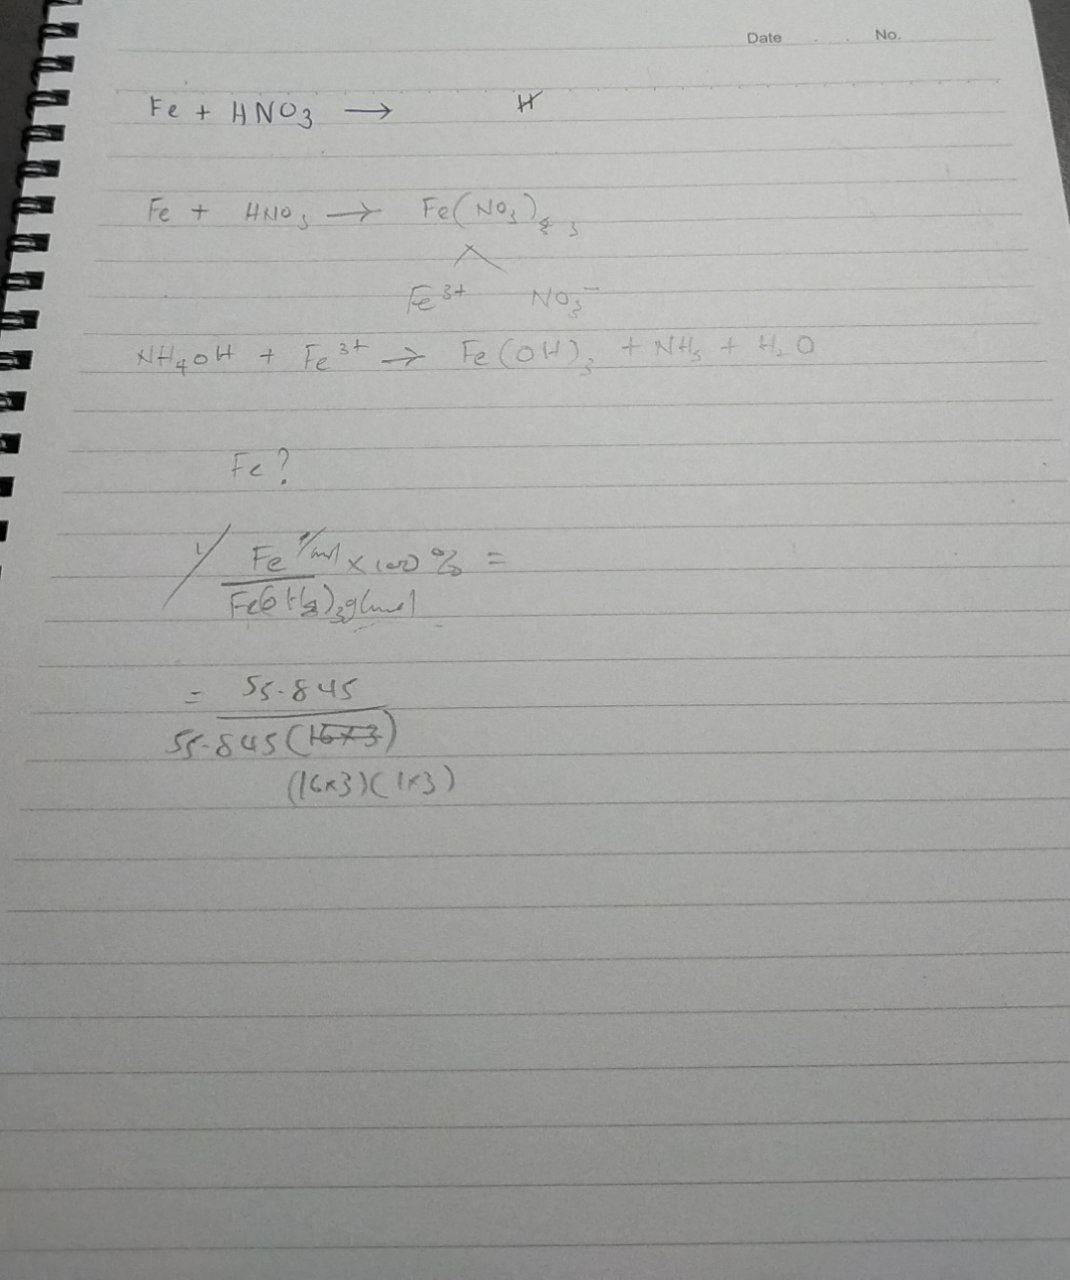 Date No.
Fe + HNO3 → H
Fe + HNO3 → Fe(NO3)2 3
Fe 3+ NO3 -
NH4OH + Fe 3+ → Fe(OH)3 + NH3 + H2O
Fe?
1/ Fe g/mol x 100 % =
Fe(OH3)3 g/mol
= 55.845
55.845 (16x3)
(16x3)(1x3)